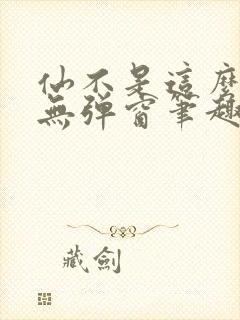 仙不是這麼
無彈窗筆趣
藏劍